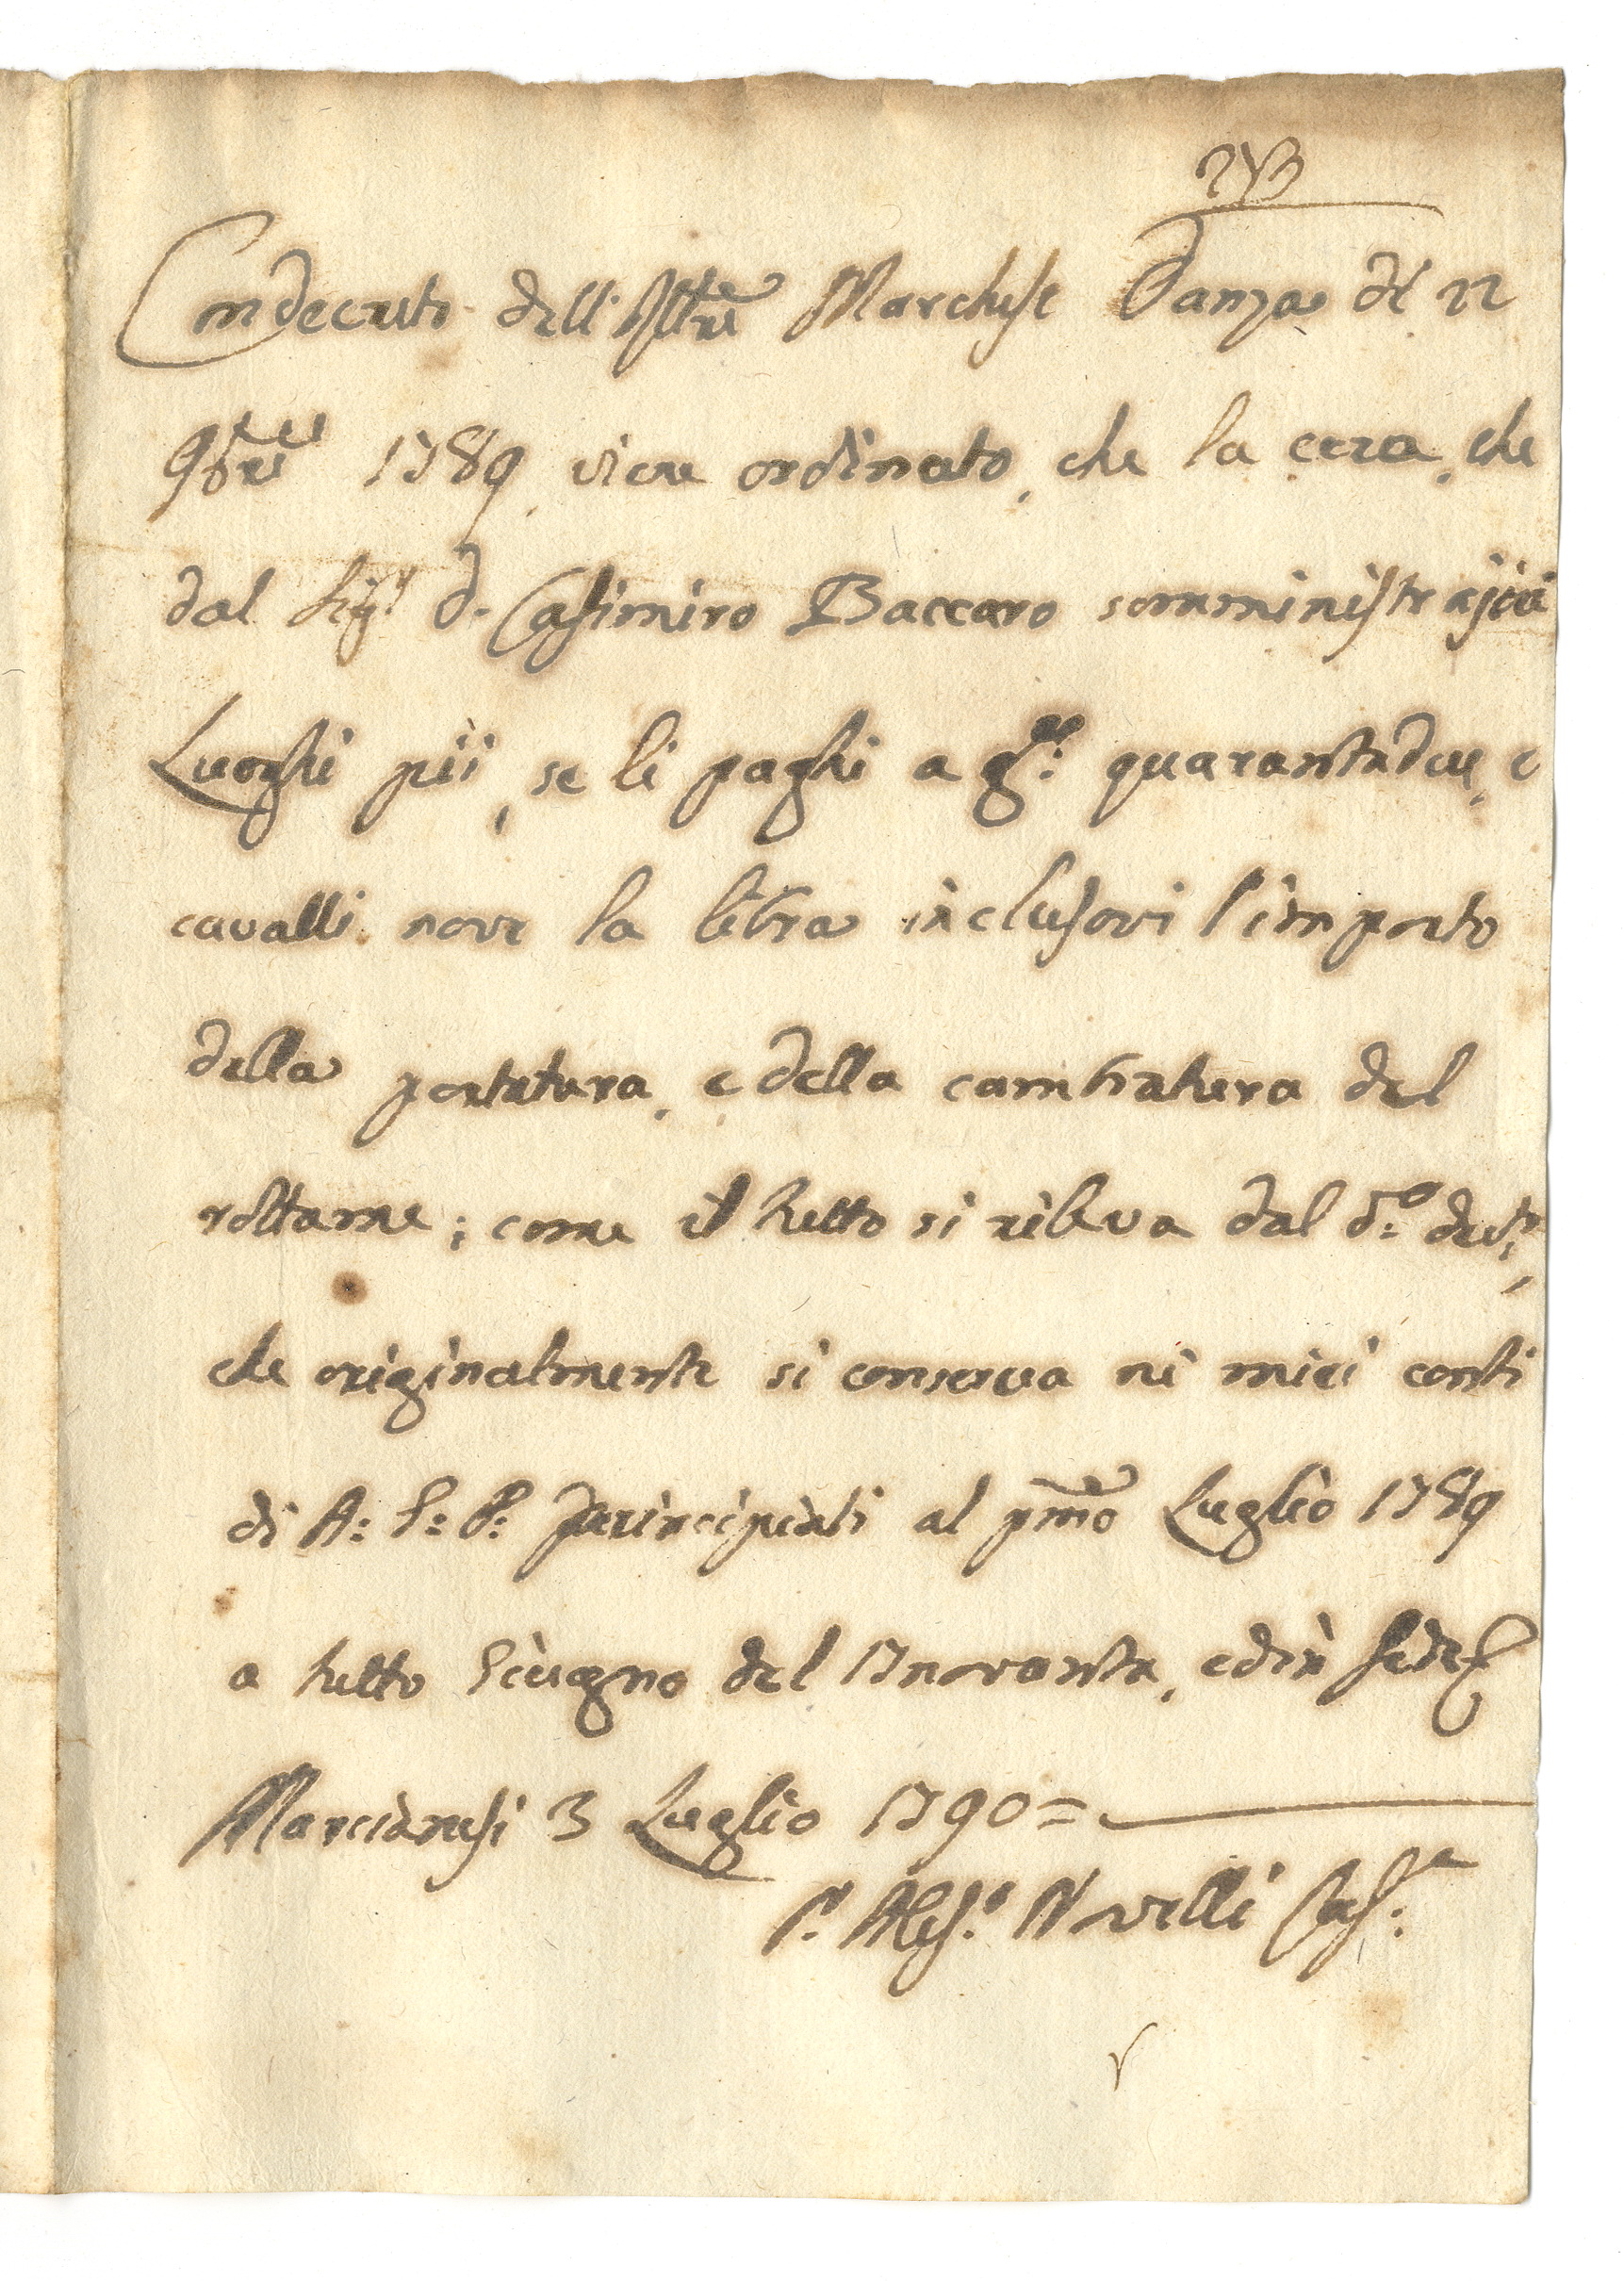 273
Con decreto dell'Ill:re Marchese Danza de 22
9bre 1789, viene ordinato, che la cera, che
dal Sig:r d. Casimiro Baccaro somministrasi ai
Luoghi pii, se li paghi a g:a quarantadue, e
cavalli nove la libra inclusovi l'importo
della portatura, e della cambiatura del
rottame; come il tutto si rileva dal d:o dec:to,
che originalmente si conserva ne miei conti
di A: G: P: principiati al pmo Luglio 1789
a tutto Giugno del 17novanta, ed in fede
Marcianesi 3 Luglio 1790 =
P. Ales:o Novelli Cas:a